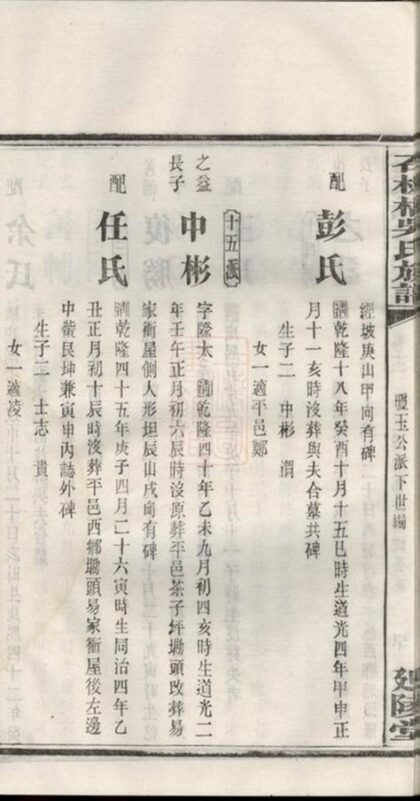 吳氏族譜
璧玉公派下世編
延陵堂
涇坡庚山甲向有碑
配
彭氏
國乾隆十八年癸酉十月十五巳時生道光四年甲申正
月十一亥時沒葬與夫合墓共碑
生子二 中彬 渭
女一適平邑鄭
十五派
之益
長子
中彬
字際太 國乾隆四十年乙未九月初四亥時生道光二
年壬午正月初六辰時沒原葬平邑茶子坪墈頭改葬易
家衝屋側人形坦辰山戌向有碑
配
任氏
國乾隆四十五年庚子四月二十六寅時生同治四年乙
丑正月初十辰時沒葬平邑西鄉墈頭易家衝屋後左邊
中嘴艮坤兼寅申內誌外碑
生子二 士志 貴
女一適凌